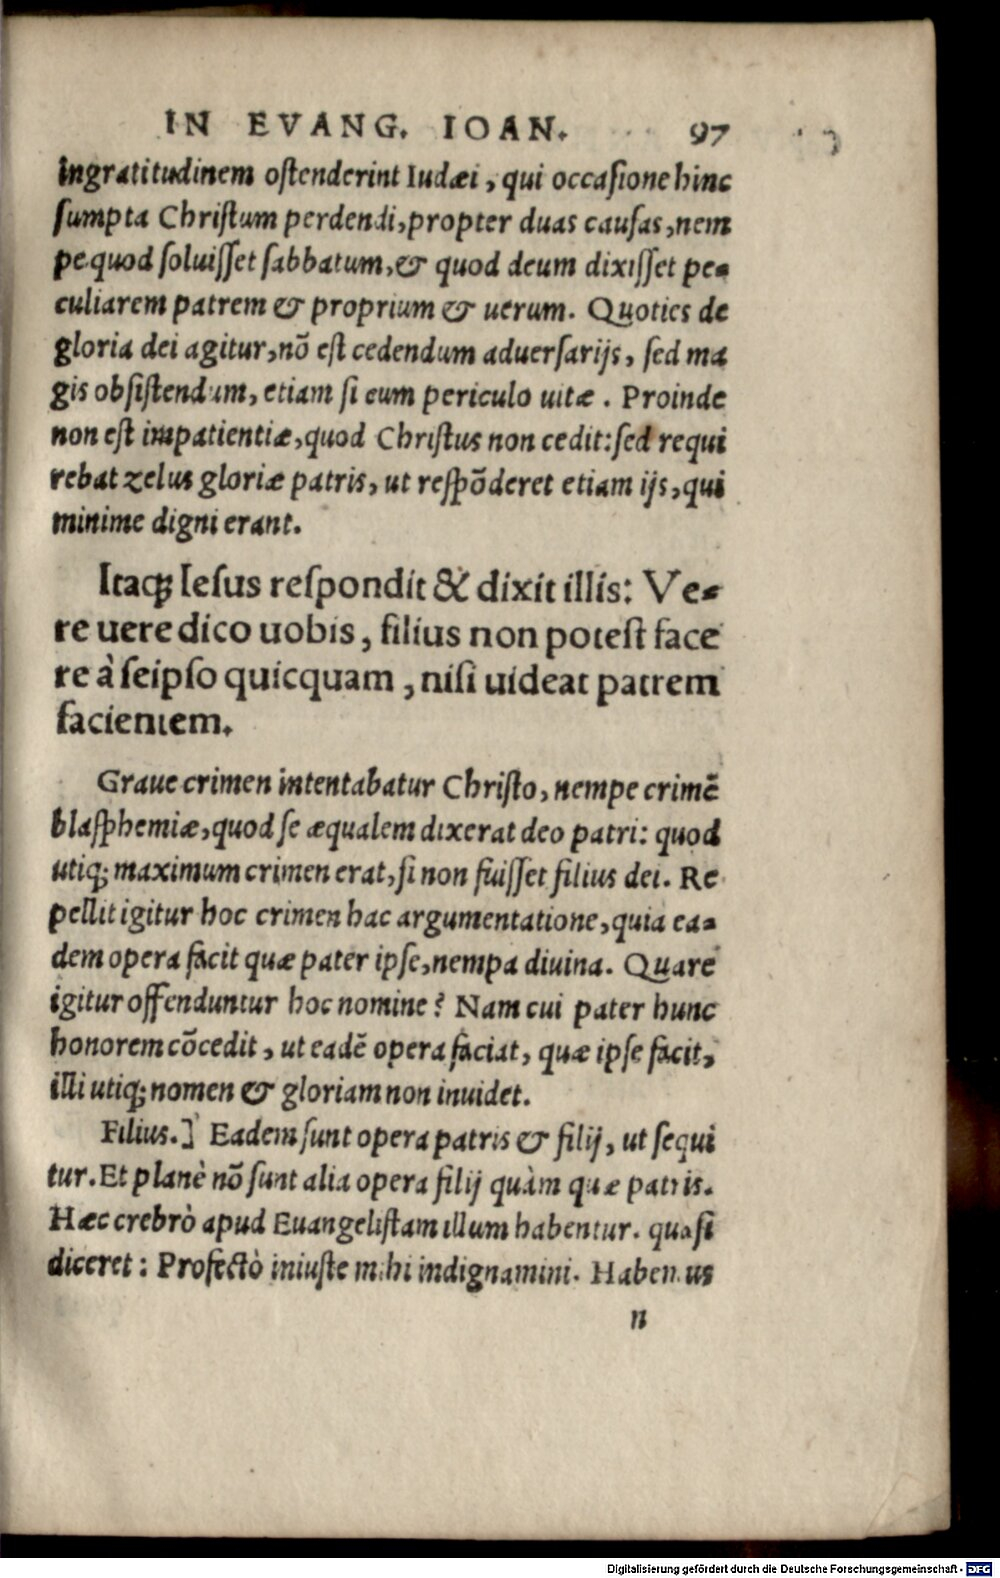 IN EVANG. IOAN. 97
ingratitudinem ostenderint Iudæi, qui occasione hinc
sumpta Christum perdendi, propter duas causas, nem
pe quod soluisset sabbatum, & quod deum dixisset pe-
culiarem patrem & proprium & uerum. Quoties de
gloria dei agitur, nõ est cedendum aduersarijs, sed ma
gis obsistendum, etiam si cum periculo uitæ. Proinde
non est impatientiæ, quod Christus non cedit: sed requi
rebat zelus gloriæ patris, ut respõderet etiam ijs, qui
minime digni erant.
Itaq; Iesus respondit & dixit illis: Ve-
re uere dico uobis, filius non potest face
re à seipso quicquam, nisi uideat patrem
facientem.
Graue crimen intentabatur Christo, nempe crimẽ
blasphemiæ, quod se æqualem dixerat deo patri: quod
utiq; maximum crimen erat, si non fuisset filius dei. Re
pellit igitur hoc crimen hac argumentatione, quia ea-
dem opera facit quæ pater ipse, nempa diuina. Quare
igitur offenduntur hoc nomine? Nam cui pater hunc
honorem cõcedit, ut eadẽ opera faciat, quæ ipse facit,
illi utiq; nomen & gloriam non inuidet.
Filius.] Eadem sunt opera patris & filij, ut sequi
tur. Et planè nõ sunt alia opera filij quàm quæ patris.
Hæc crebrò apud Euangelistam illum habentur. quasi
diceret: Profectò iniuste mihi indignamini. Habemus
n
Digitalisierung gefördert durch die Deutsche Forschungsgemeinschaft - DFG